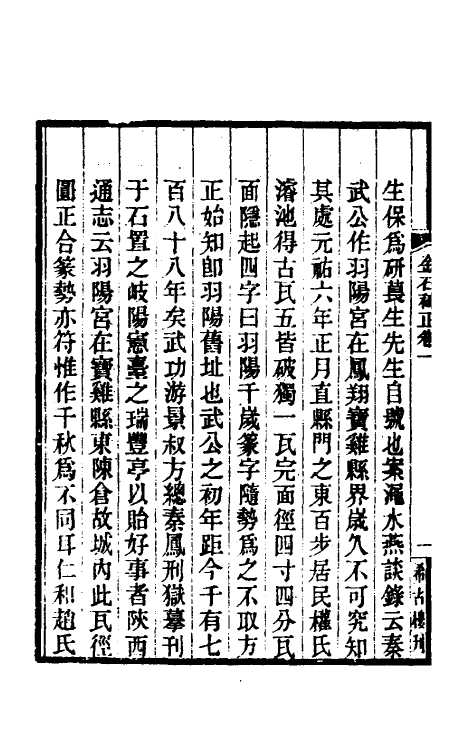 金石補正卷一
一
希古樓刊
生保爲研農生先生自號也案澠水燕談錄云秦
武公作羽陽宮在鳳翔寶雞縣界歲久不可究知
其處元祐六年正月直縣門之東百步居民權氏
濬池得古瓦五皆破獨一瓦完面徑四寸四分瓦
面隱起四字曰羽陽千歲篆字隨勢爲之不取方
正始知卽羽陽舊址也武公之初年距今千有七
百八十八年矣武功游景叔方總秦鳳刑獄摹刊
于石置之岐陽憲臺之瑞豐亭以貽好事者陝西
通志云羽陽宮在寶雞縣東陳倉故城內此瓦徑
圓正合篆勢亦符惟作千秋爲不同耳仁和趙氏